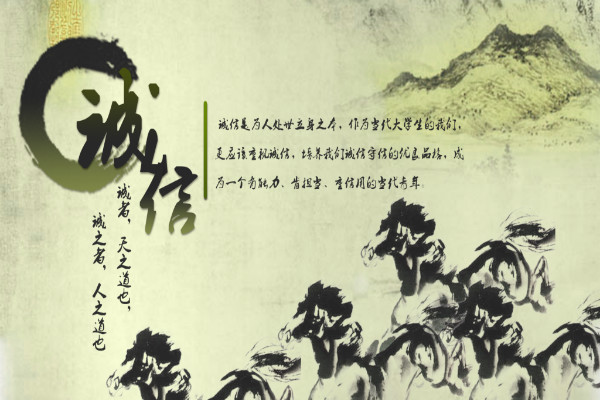 诚信
诚信是为人处世立身之本，作为当代大学生的我们，
更应该重视诚信，培养我们诚信守信的优良品格，成
为一个有能力、肯担当、重信用的当代青年。
诚者，天之道也，
诚之者，人之道也